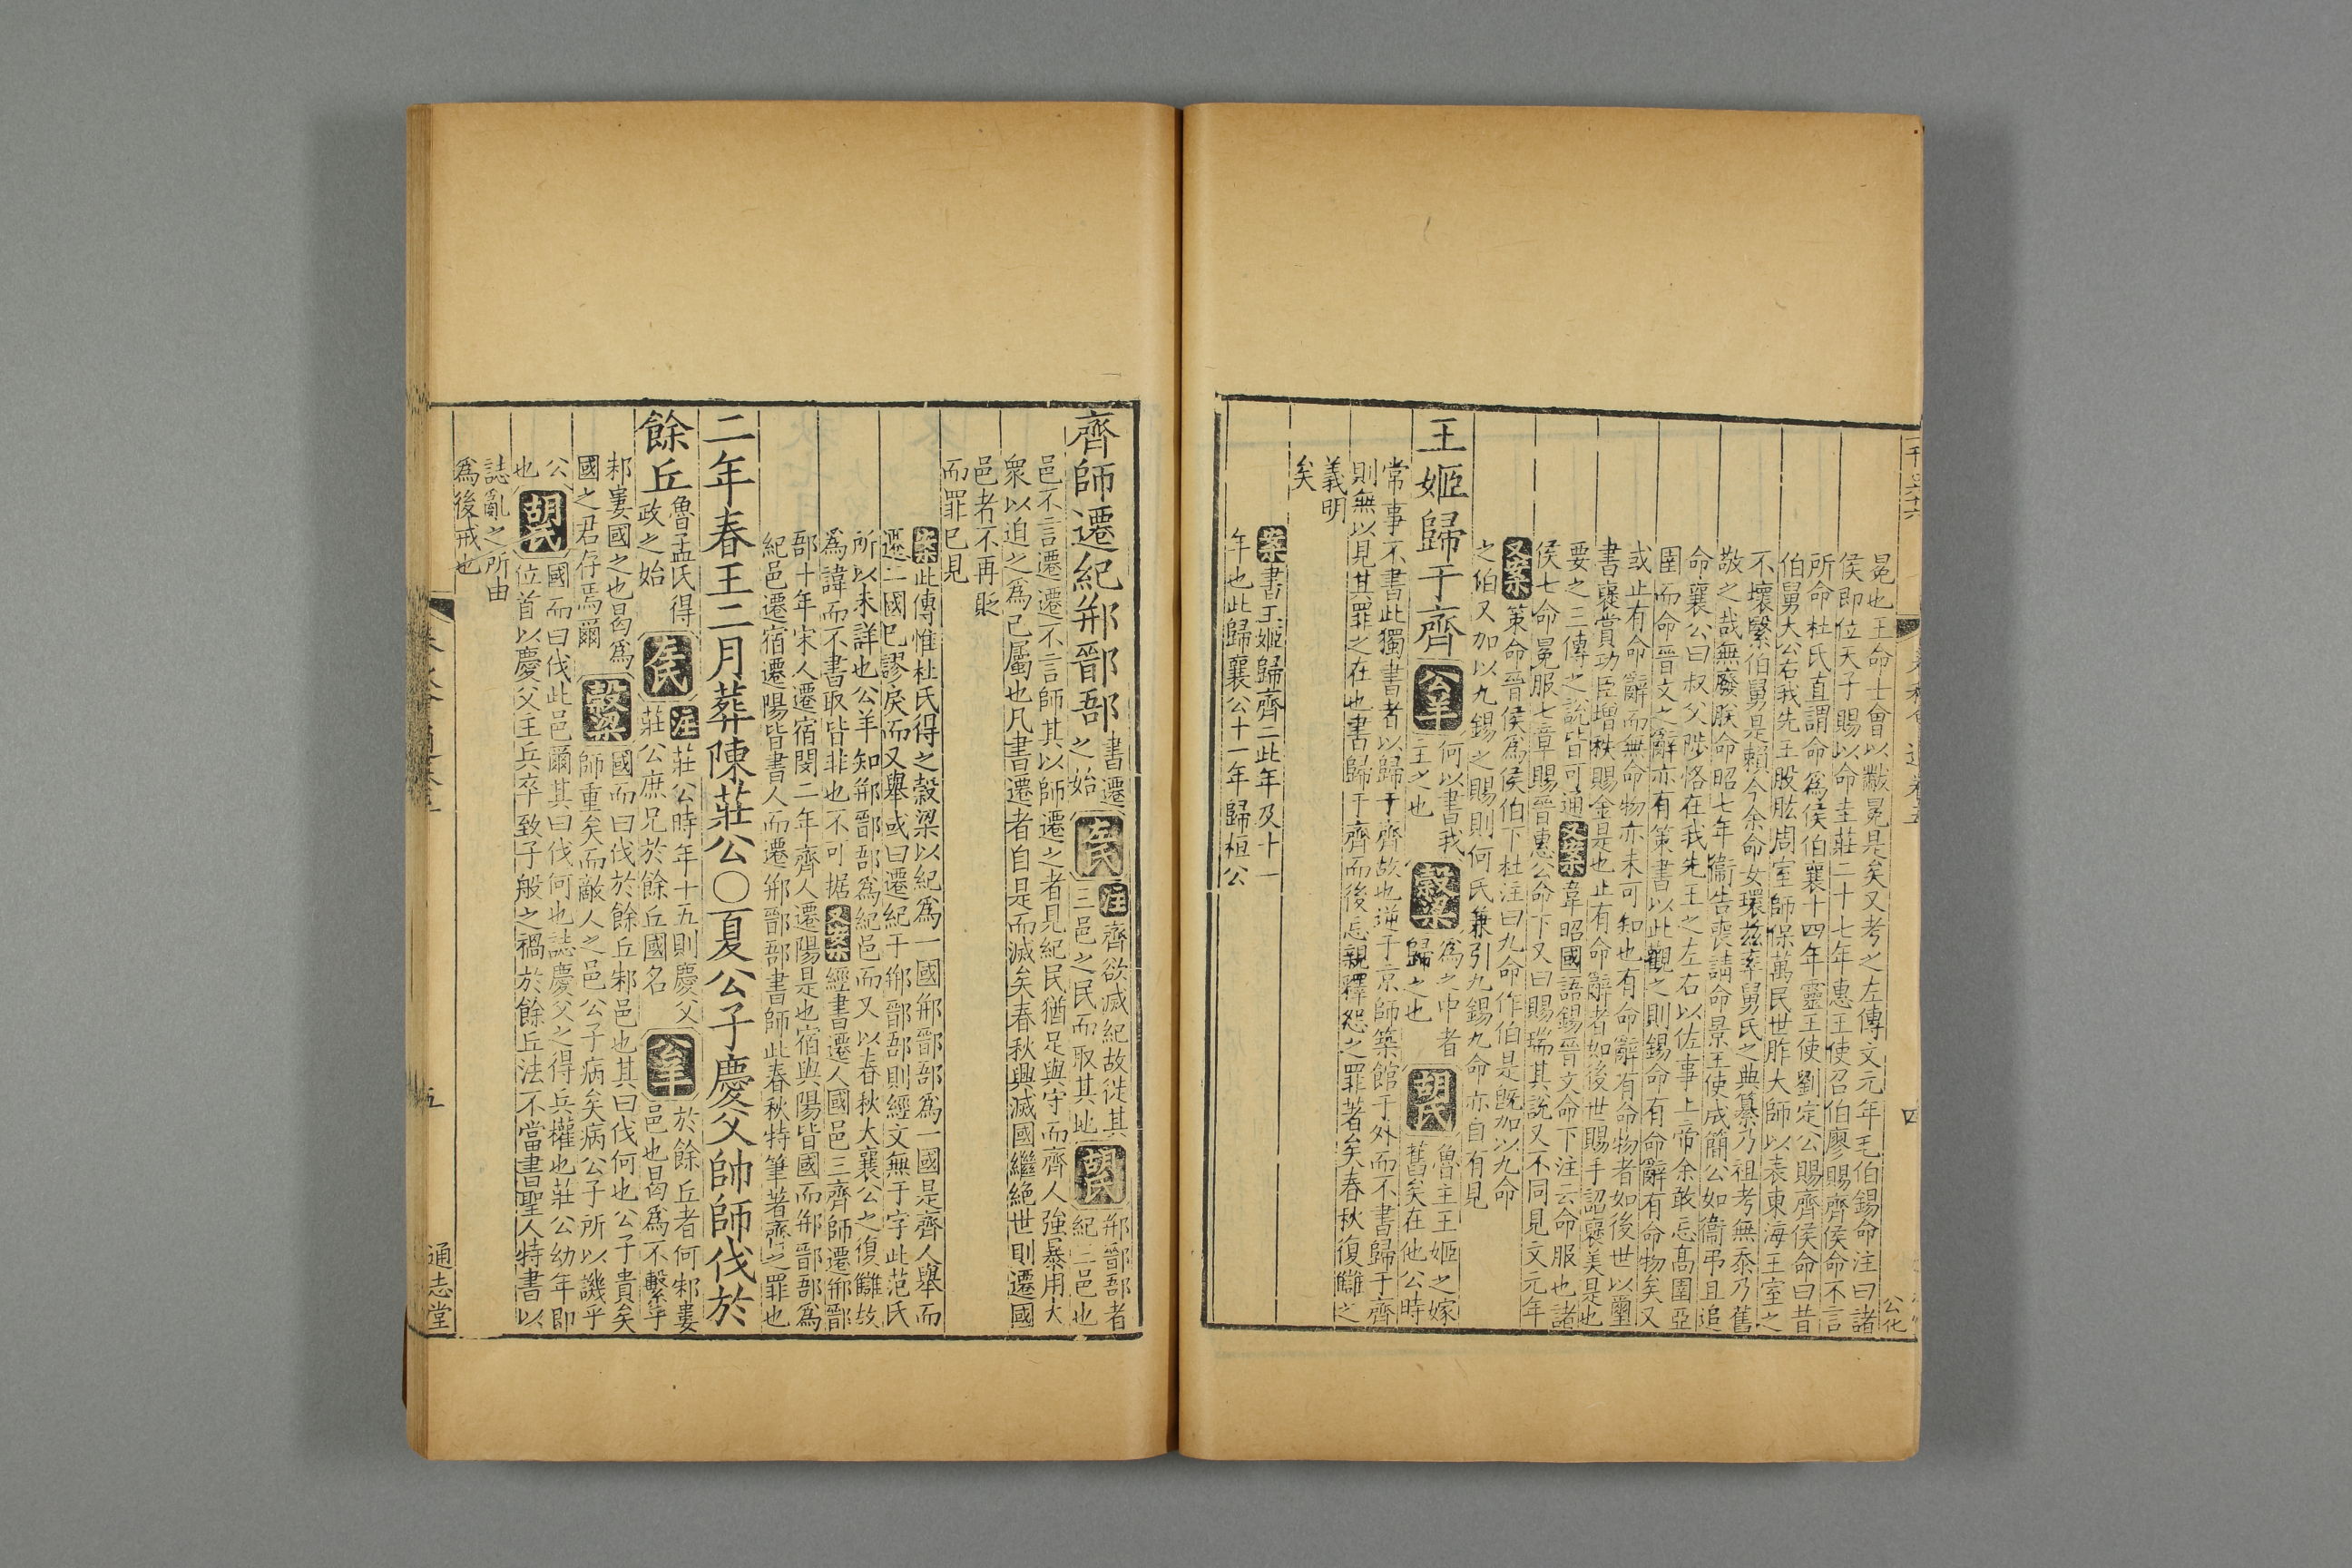 冕也王命士會以黻冕是矣又考之左傳文元年毛伯錫命注曰諸
侯即位天子賜以命圭莊二十七年惠王使召伯廖賜齊侯命不言
所命杜氏直謂命爲侯伯襄十四年靈王使劉定公賜齊侯命曰昔
伯舅大公右我先王股肱周室師保萬民世胙大師以表東海王室之
不壞繄伯舅是賴今余命女環茲率舅氏之典纂乃祖考無忝乃舊
敬之哉無廢朕命昭七年衞告喪請命景王使成簡公如衞弔且追
命襄公曰叔父陟恪在我先王之左右以佐事上帝余敢忘高圉亞
圉而命晉文之辭亦有策書以此觀之則錫命有命辭有命物矣又
或止有命辭而無命物亦未可知也有命辭有命物者如後世以璽
書襃賞功臣增秩賜金是也止有命辭者如後世賜手詔襃美是也
要之三傳之說皆可通又案韋昭國語錫晉文命下注云命服也諸
侯七命冕服七章賜晉惠公命下又曰賜瑞其說又不同見文元年
又案策命晉侯爲侯伯下杜注曰九命作伯是旣加以九命
之伯又加以九錫之賜則何氏兼引九錫九命亦自有見
王姬歸于齊公羊何以書我主之也穀梁爲之中者歸之也胡氏魯主王姬之嫁舊矣在他公時
常事不書此獨書者以歸于齊故也逆于京師築館于外而不書歸于齊
則無以見其罪之在也書歸于齊而後忘親釋怨之罪著矣春秋復讎之
義明
矣
案書王姬歸齊二此年及十一
年也此歸襄公十一年歸桓公
四
齊師遷紀郱鄑郚書遷之始左氏注齊欲滅紀故徙其三邑之民而取其地胡氏郱鄑郚者紀三邑也
邑不言遷遷不言師其以師遷之者見紀民猶足與守而齊人強暴用大
衆以迫之爲已屬也凡書遷者自是而滅矣春秋興滅國繼絶世則遷國
邑者不再貶
而罪已見
案此傳惟杜氏得之穀梁以紀爲一國郱鄑郚爲一國是齊人舉而
遷二國已謬戾而又舉或曰遷紀于郱鄑郚則經文無于字此范氏
所以未詳也公羊知郱鄑郚爲紀邑而又以春秋大襄公之復讎故
爲諱而不書取皆非也不可据又案經書遷人國邑三齊師遷郱鄑
郚十年宋人遷宿閔二年齊人遷陽是也宿與陽皆國而郱鄑郚爲
紀邑遷宿遷陽皆書人而遷郱鄑郚書師此春秋特筆著齊之罪也
二年春王二月葬陳莊公〇夏公子慶父帥師伐於
餘丘魯孟氏得政之始左氏注莊公時年十五則慶父莊公庶兄於餘丘國名公羊於餘丘者何邾婁邑也曷爲不繫乎
邾婁國之也曷爲
國之君存焉爾穀梁國而曰伐於餘丘邾邑也其曰伐何也公子貴矣
師重矣而敵人之邑公子病矣病公子所以譏乎
公
也胡氏國而曰伐此邑爾其曰伐何也誌慶父之得兵權也莊公幼年即
位首以慶父主兵卒致子般之禍於餘丘法不當書聖人特書以
誌亂之所由
爲後戒也
五
通志堂